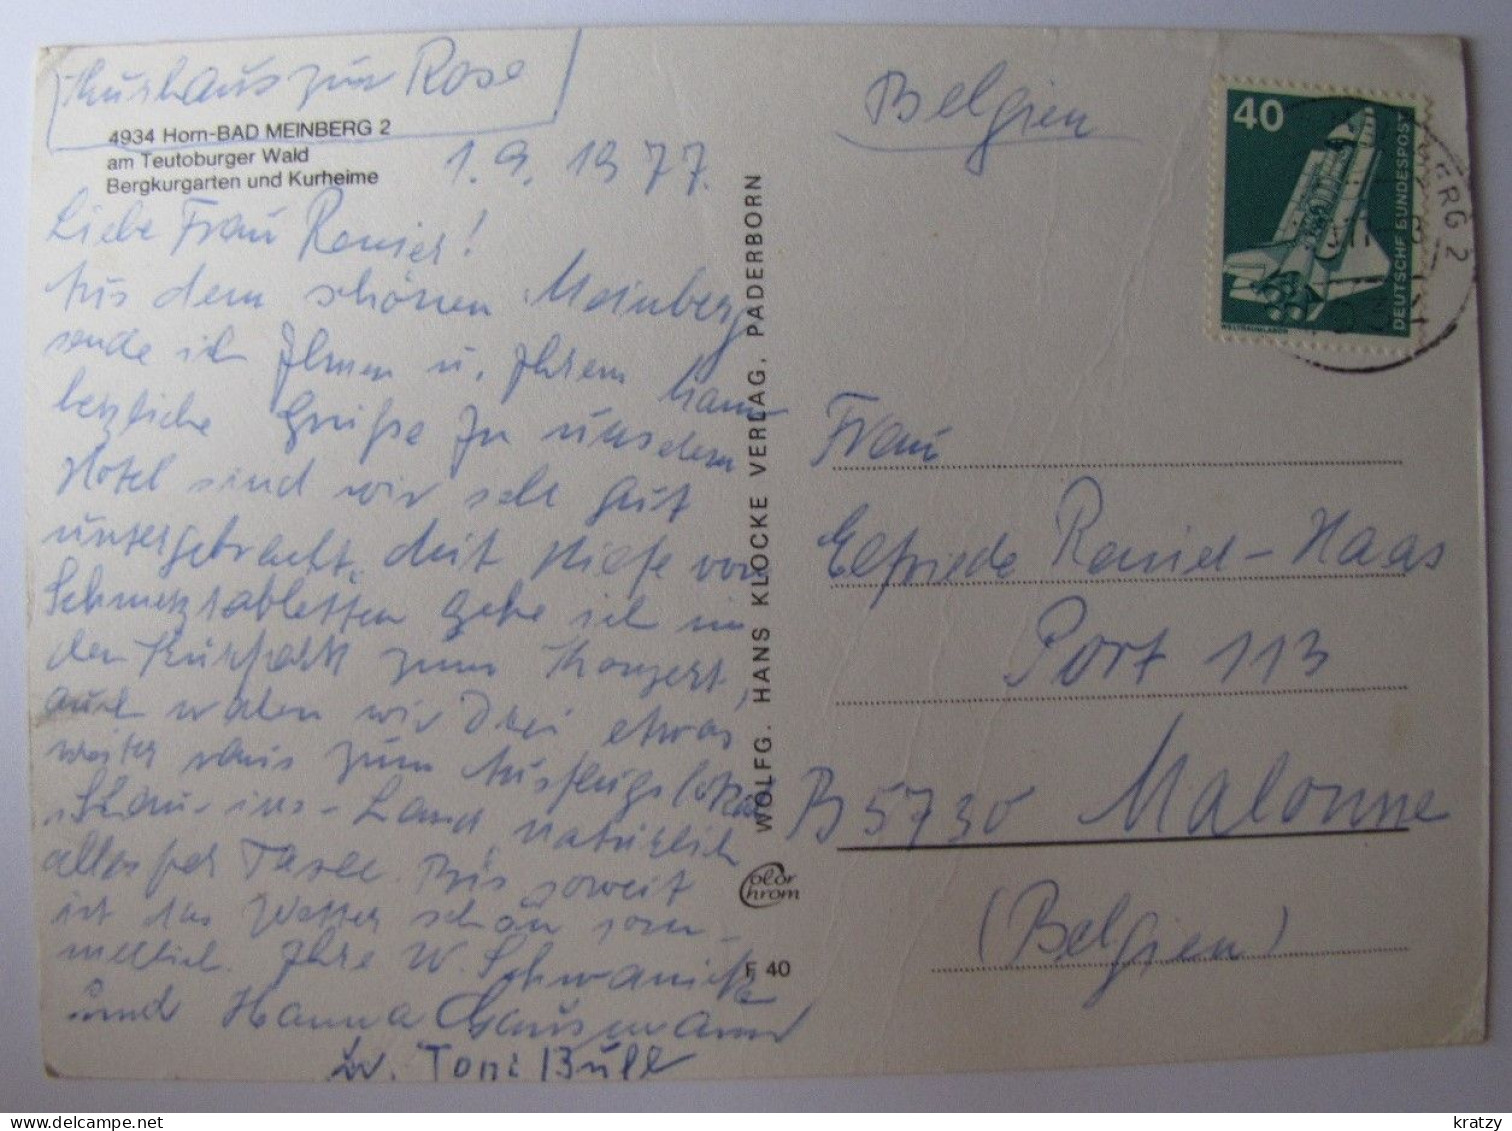 Kurhaus zur Rose
4934 Horn-BAD MEINBERG 2
am Teutoburger Wald
Bergkurgarten und Kurheime
1.9.1977.
Liebe Frau Ronier!
Aus dem schönen Meinberg
sende ich Ihnen u. Ihrem Mann
herzliche Grüße In unserem
Hotel sind wir sehr gut
untergebracht. Mit Hilfe von
Schmerztabletten gehe ich in
den Kurpark zum Konzert,
auch waren wir Drei etwas
weiter raus zum Ausflugslokal
"Schau-ins-Land", natürlich
alles per Taxe. Bis soweit
ist das Wetter schön som-
merlich. Ihre W. Schwanicke
und Hanna Gausmann
Toni Bull
WOLFG. HANS KLOCKE VERLAG, PADERBORN
Color
chrom
F 40
Belgien
40
DEUTSCHE BUNDESPOST
WELTRAUMLABOR
ERG 2
Frau
Elfriede Ronier-Haas
Port 113
B 5730 Malonne
(Belgien)
kratzy